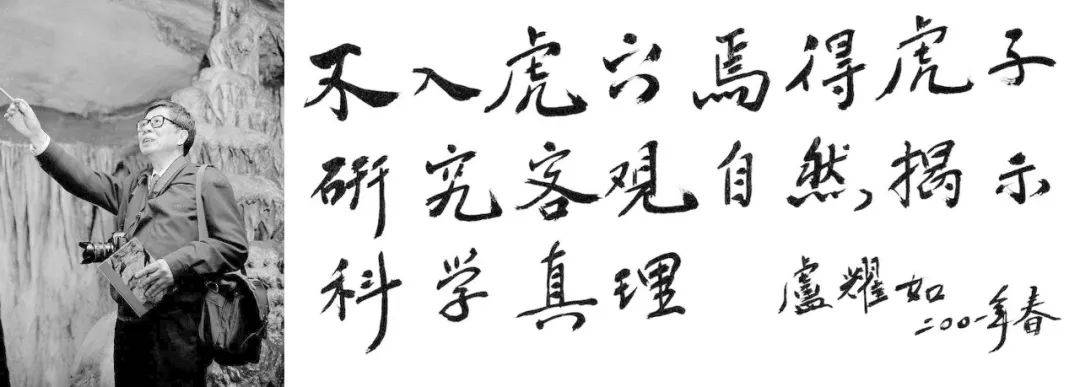 不入虎穴焉得虎子
研究客观自然,揭示
科学真理
盧耀如
二〇〇一年春